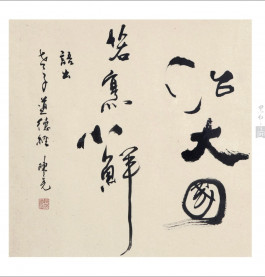 治大國
若烹小鮮
語出
老子道德經 陳亮